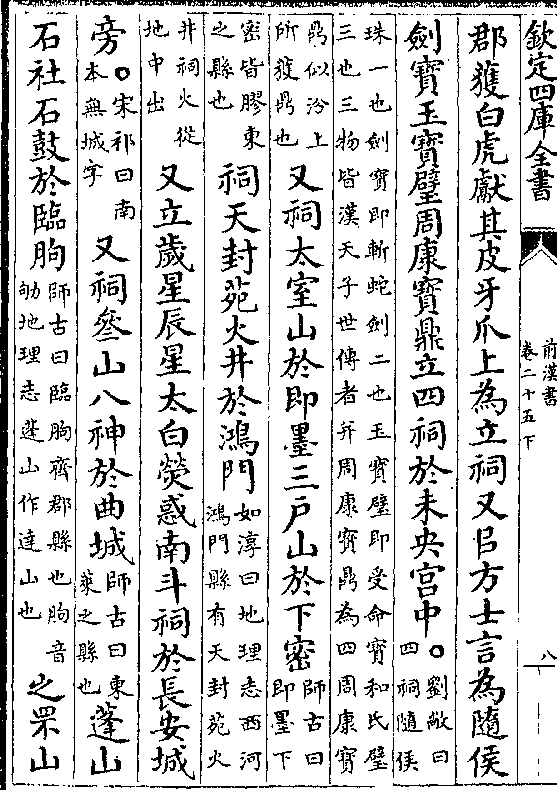 欽定四庫全書
前漢書
卷二十五下
八
郡獲白虎獻其皮牙爪上為立祠又㠯方士言為隨侯
劍寶玉寶璧周康寶鼎立四祠於未央宫中○劉敞曰
四祠隨侯
珠一也劍寶即斬蛇劍二也玉寶璧即受命寶和氏璧
三也三物皆漢天子世傳者并周康寶鼎為四周康寶
鼎似汾上
所獲鼎也又祠太室山於即墨三戸山於下密師古曰
即墨下
密皆膠東
之縣也祠天封苑火井於鴻門如淳曰地理志西河
鴻門縣有天封苑火
井祠火從
地中出又立歲星辰星太白熒惑南斗祠於長安城
旁○宋祁曰南
本無城字又祠參山八神於曲城師古曰東
萊之縣也蓬山
石社石鼓於臨朐師古曰臨朐齊郡縣也朐音
劬地理志蓬山作達山也之罘山